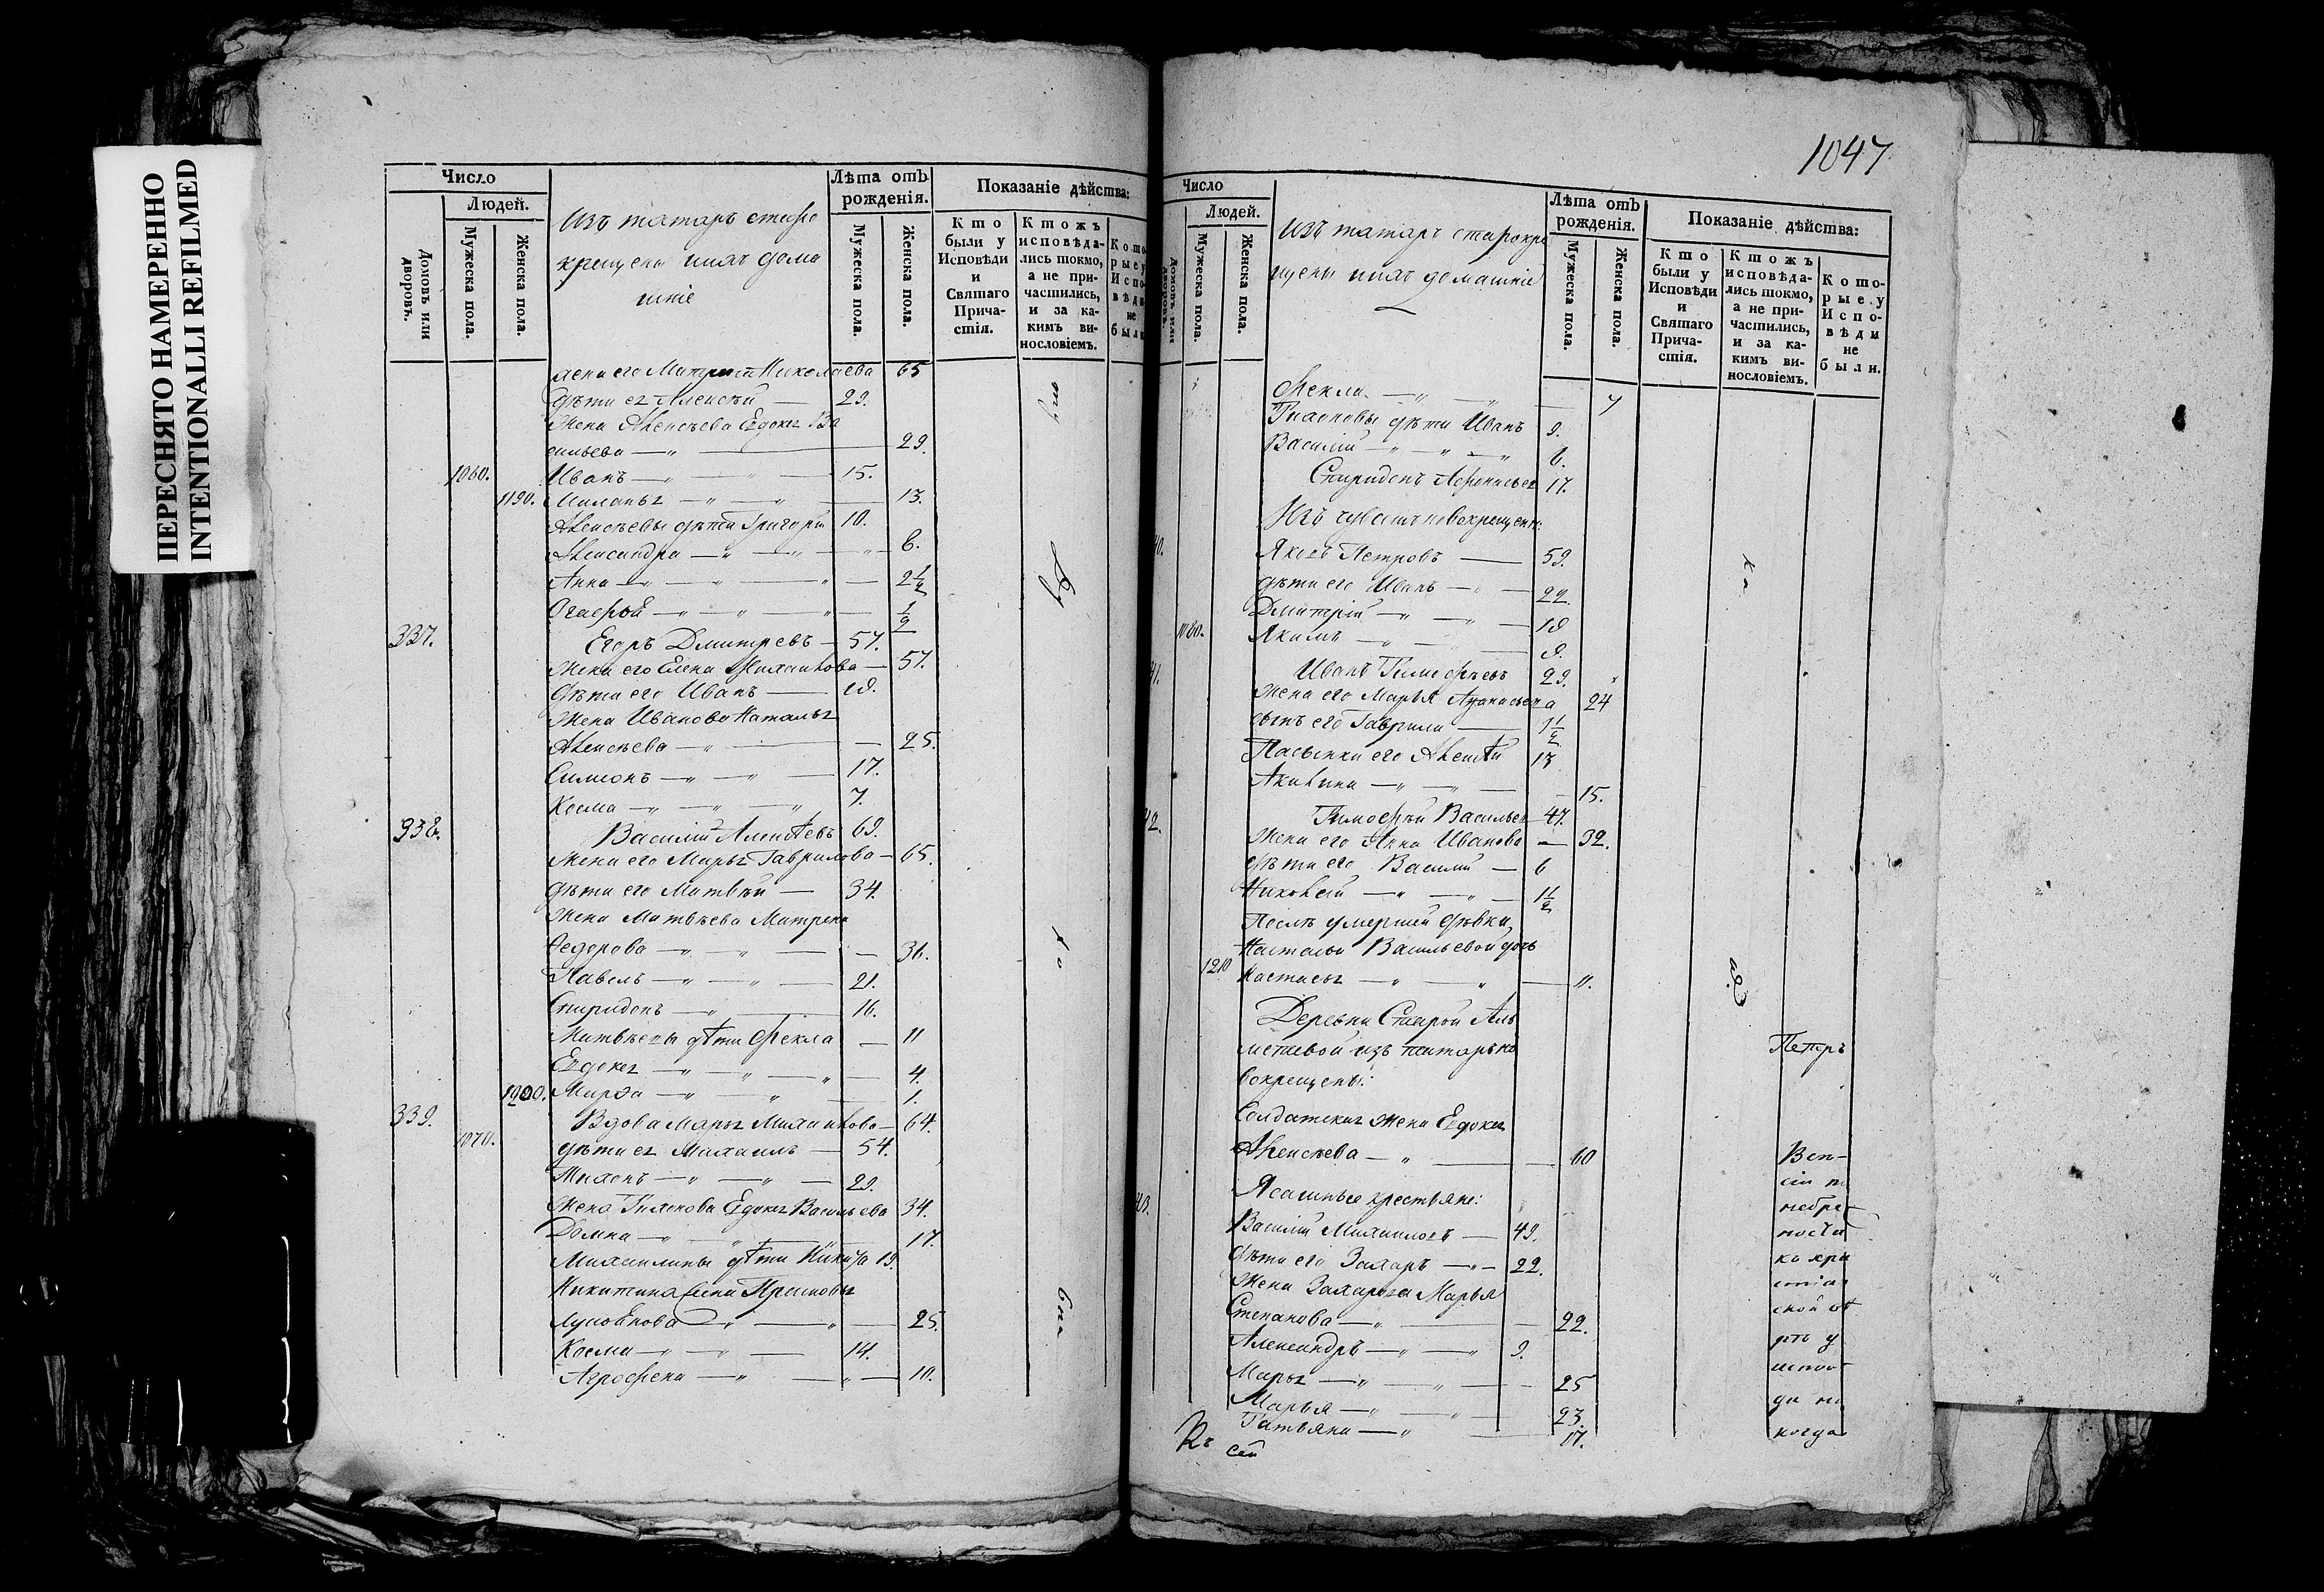 ПЕРЕСНЯТО НАМЕРЕННО
INTENTIONALLI REFILMED
Число
Людей.
Домовъ или дворовъ.
Мужеска пола.
Женска пола.
Изъ татаръ старо
крещены ихъ дома
шніе
Лѣта отъ рожденія.
Мужеска пола.
Женска пола.
Показаніе дѣйства:
Кто были у Исповѣди и Святаго Причастія.
Ктожъ исповѣдались токмо, а не причастились, и за какимъ винословіемъ.
Которые у Исповѣди не были
жена его Матрена Николаева 65
дѣти ея Алексѣй — 29.
Жена Алексѣева Евдокея Ва
сильева — 29.
1060. Иванъ — 15.
1190. Маланья — 13.
Алексѣевы дѣти Григорій 10.
Александра — 6.
Анна — 2 1/2
1/2
337. Егоръ Дмитревъ — 57.
Жена его Елена Михайлова — 57.
дѣти его Иванъ — 28.
Жена Иванова Наталья
Алексѣева — 25.
Симионъ — 17.
Косма — 7.
338. Василій Алексѣевъ 69.
Жена его Марья Гаврилова — 65.
дѣти его Матвѣй — 34.
Жена Матвѣева Матрена
Федорова — 36.
Павелъ — 21.
Спиридонъ — 16.
Матвѣевы дѣти Фекла — 11
Евдокея — 4.
1200. Марѳа — 1.
339. Вдова Марья Михайлова — 64.
1070. дѣти ея Михаилъ — 54.
Тихонъ — 29.
Жена Тихонова Евдокея Васильева 34.
Домна — 17.
Михаиловы дѣти Никита 19.
Никитина жена Прасковья
25.
Косма — 14.
Агрофена — 10.
1047
Число
Людей.
Домовъ или дворовъ.
Мужеска пола.
Женска пола.
Изъ татаръ старокре
щены ихъ домашніе
Лѣта отъ рожденія.
Мужеска пола.
Женска пола.
Показаніе дѣйства:
Кто были у Исповѣди и Святаго Причастія.
Ктожъ исповѣдались токмо, а не причастились, и за какимъ винословіемъ.
Которые у Исповѣди не были.
Фекла — 7
Тихоновы дѣти Иванъ 9.
Василій — 6.
Спиридонъ Афонасьев 17.
Изъ чувашъ новокрещены:
40. Яковъ Петровъ — 59.
дѣти его Иванъ — 22.
Дмитрій — 18
1080. Якимъ — 8.
41. Иванъ Тимофѣевъ 29.
Жена его Марья Афанасьева 24
сынъ его Гаврила — 1 1/2
Пасынки его Алексѣй 13
Акилина — 15.
42. Тимофѣй Васильев 47.
Жена его Анна Иванова — 32.
дѣти его Василій — 6
Николай — 1 1/2
Послѣ умершей дѣвки
Натальи Васильевой дочь
1210 Настасья — 11.
Деревни Старой Аль
метевой изъ татаръ но
вокрещены:
Солдатская жена Евдокея
Алексѣева — 60
Ясашные крестьяне:
43. Василій Михаиловъ — 49.
дѣти его Захаръ — 22.
Жена Захарова Марья
Степанова — 22.
Александръ — 9.
Марья — 25
Марья — 23.
Татьяна — 17.
Петръ
небре
ко хри
стіан
ской вѣ
рѣ у
когда